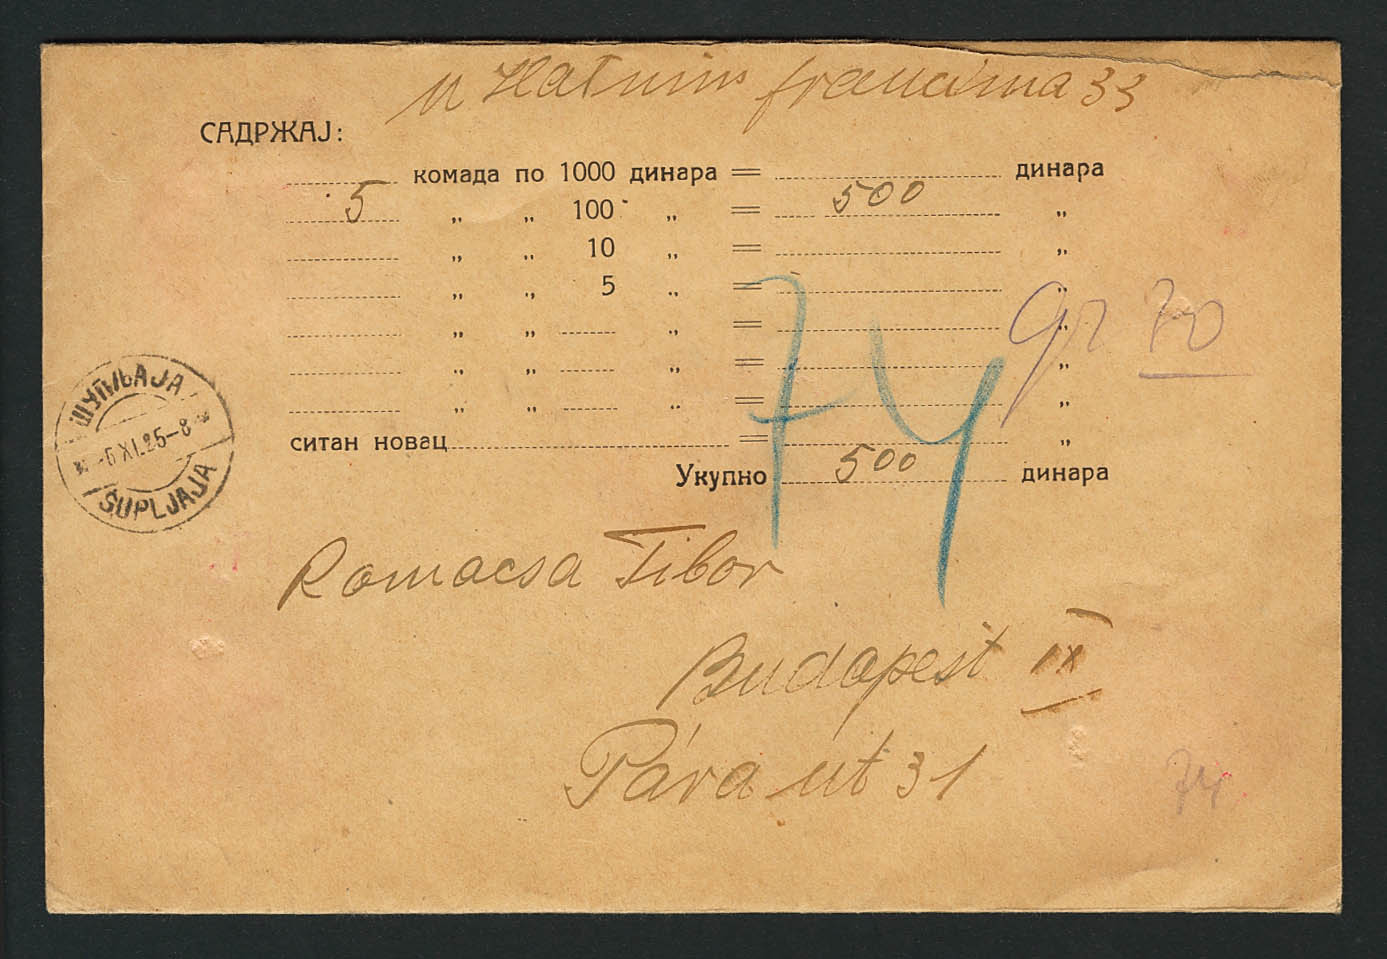 u zlatnim francima 33
САДРЖАЈ:
комада по 1000 динара = динара
5 „ „ 100 „ = 500 „
„ „ 10 „ = „
„ „ 5 „ = „
„ „ „ = „
„ „ „ = „
„ „ „ = „
ситан новац = „
Укупно 500 динара
74
gr 70
ШУПЉАЈА
-6 XI.25-8
ŠUPLJAJA
Tibor
Budapest IX
Páva út 31
74